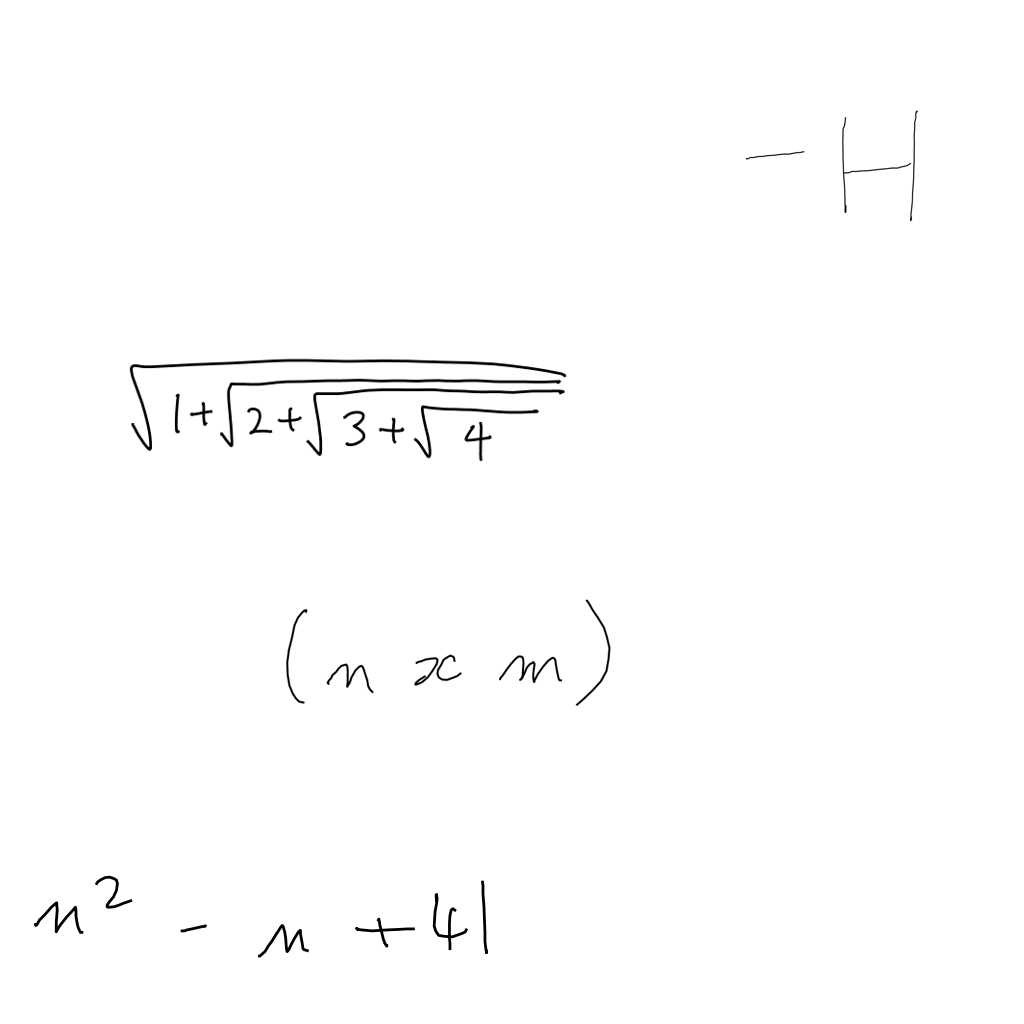 -H
√(1+√(2+√(3+√4)))
(n x m)
n² - n + 41